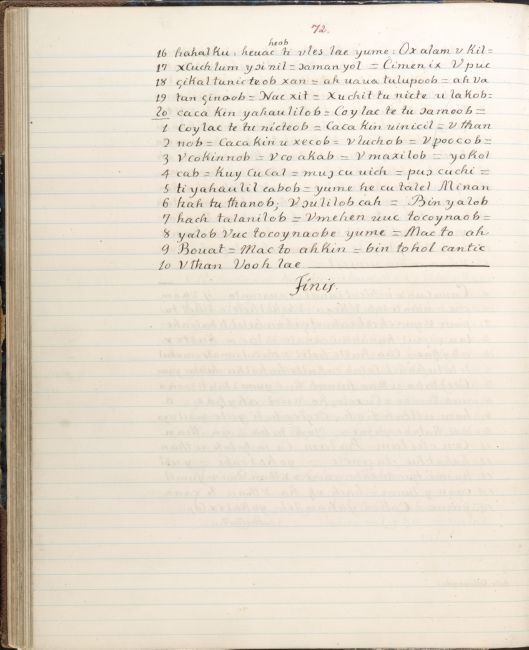 72.
heob
16 hahalku: heuac ti vles lae yume: Oxalam v kil=
17 xCuchlum ysinil = ɔamanyol = Cimenix Vpuc
18 çikaltunicteob xan = ah uaua tulupoob = ah va
19 tan çinoob = Nacxit = Xuchit tu nicte u lakob=
20 caca kin yahaulilob = Coylac te tu ɔamoob =
1 Coylac te tu nicteob = Caca Kin uinicil = v than
2 nob = Cacakin u xecob = v luchob = Vpoocob =
3 V cokinnob = V co akab = V maxilob = yokol
4 cab = Kuy cu cal = muɔ cu uich = puɔ cuchi =
5 ti yahaulil cabob = yume he cu talel Minan
6 hah tu thanob; Vɔulilob cah = Bin yalob
7 hach talanilob = Vmehen uuc tocoynaob =
8 yalob Vuc tocoynaobe yume = Mac to ah
9 Bouat = Mac to ahkin = bin tohol cantic
10 V than Vooh lae
Finis.